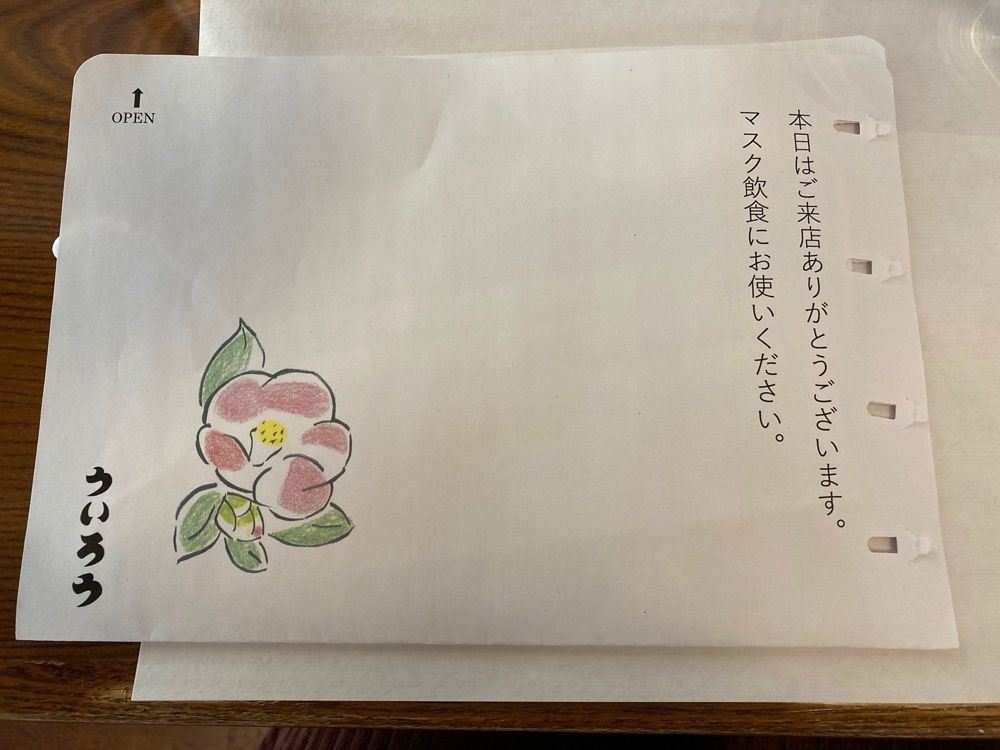 本日はご来店ありがとうございます。
マスク飲食にお使いください。
OPEN
ういろう